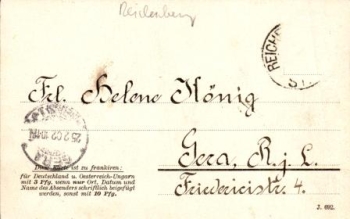 Reichenberg
REICHEN
Frl. Helene König
25 2 02
GERA
Gera, R. j. L.
Friedericistr. 4.
Diese Karte ist zu frankieren:
für Deutschland u. Oesterreich-Ungarn
mit 3 Pfg. wenn nur Ort, Datum und
Name des Absenders schriftlich beigefügt
werden, sonst mit 10 Pfg.